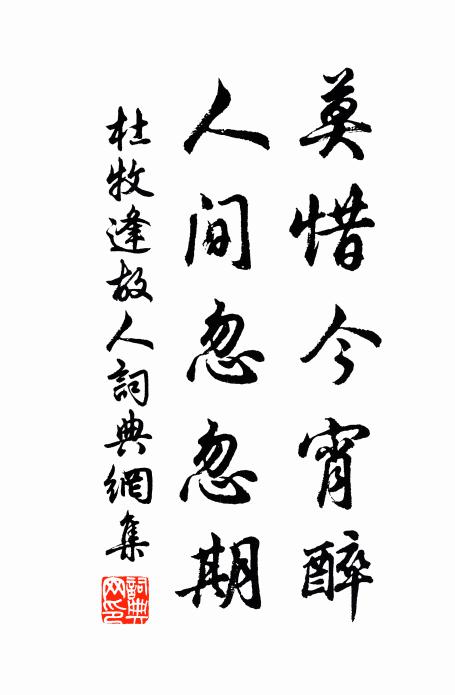 莫惜今宵醉
人间忽忽期
杜牧逢故人詞典網集
詞典網印